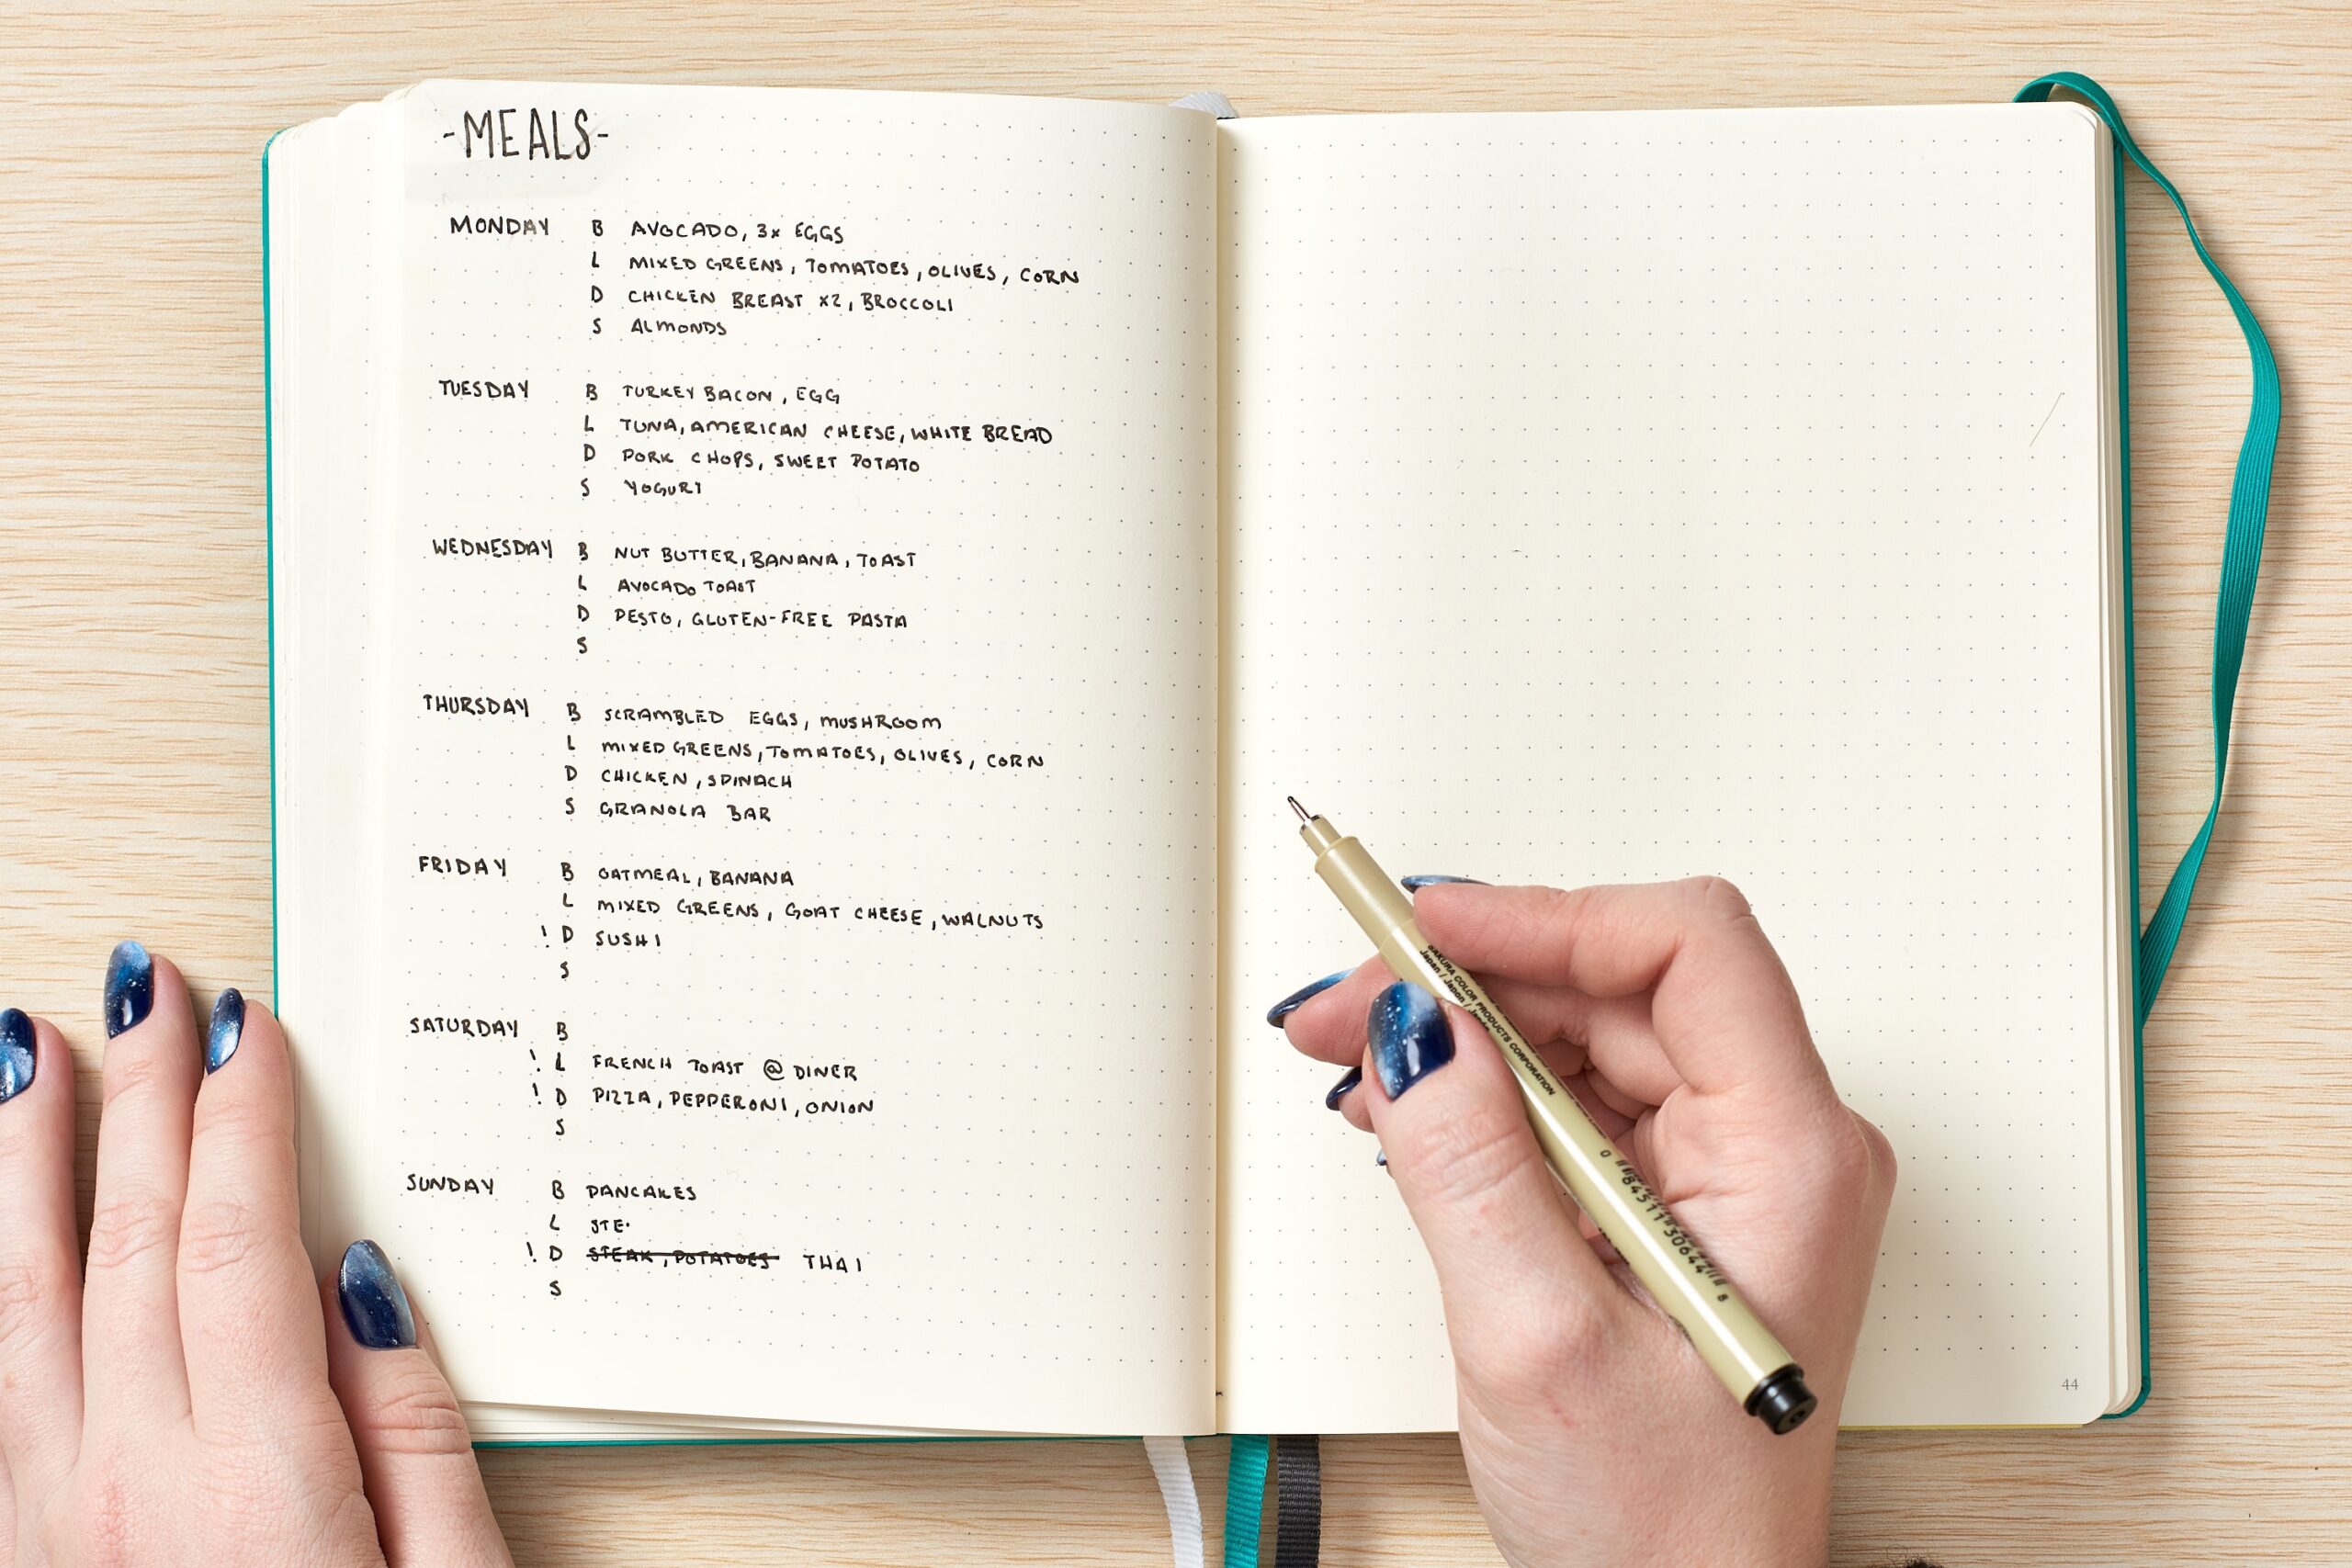 -MEALS-
MONDAY B AVOCADO, 3x EGGS
L MIXED GREENS, TOMATOES, OLIVES, CORN
D CHICKEN BREAST x2, BROCCOLI
S ALMONDS
TUESDAY B TURKEY BACON, EGG
L TUNA, AMERICAN CHEESE, WHITE BREAD
D PORK CHOPS, SWEET POTATO
S YOGURT
WEDNESDAY B NUT BUTTER, BANANA, TOAST
L AVOCADO TOAST
D PESTO, GLUTEN-FREE PASTA
S
THURSDAY B SCRAMBLED EGGS, MUSHROOM
L MIXED GREENS, TOMATOES, OLIVES, CORN
D CHICKEN, SPINACH
S GRANOLA BAR
FRIDAY B OATMEAL, BANANA
L MIXED GREENS, GOAT CHEESE, WALNUTS
! D SUSHI
S
SATURDAY B
! L FRENCH TOAST @ DINER
! D PIZZA, PEPPERONI, ONION
S
SUNDAY B PANCAKES
L STE
! D STEAK, POTATOES THAI
S
SAKURA COLOR PRODUCTS CORPORATION
Japan / Japon /
44